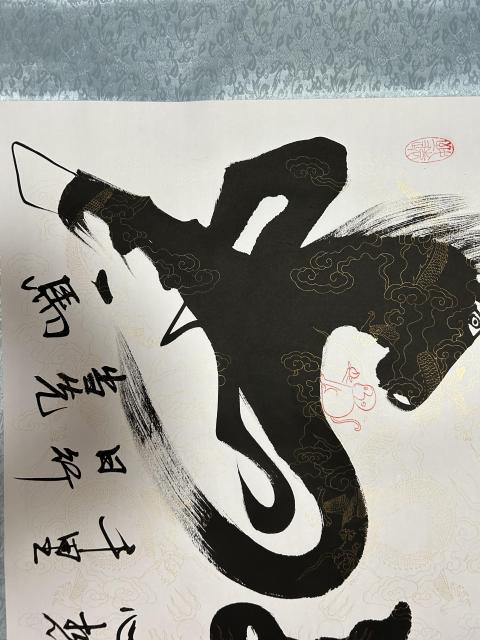 一馬
當先
日行
千里
心想